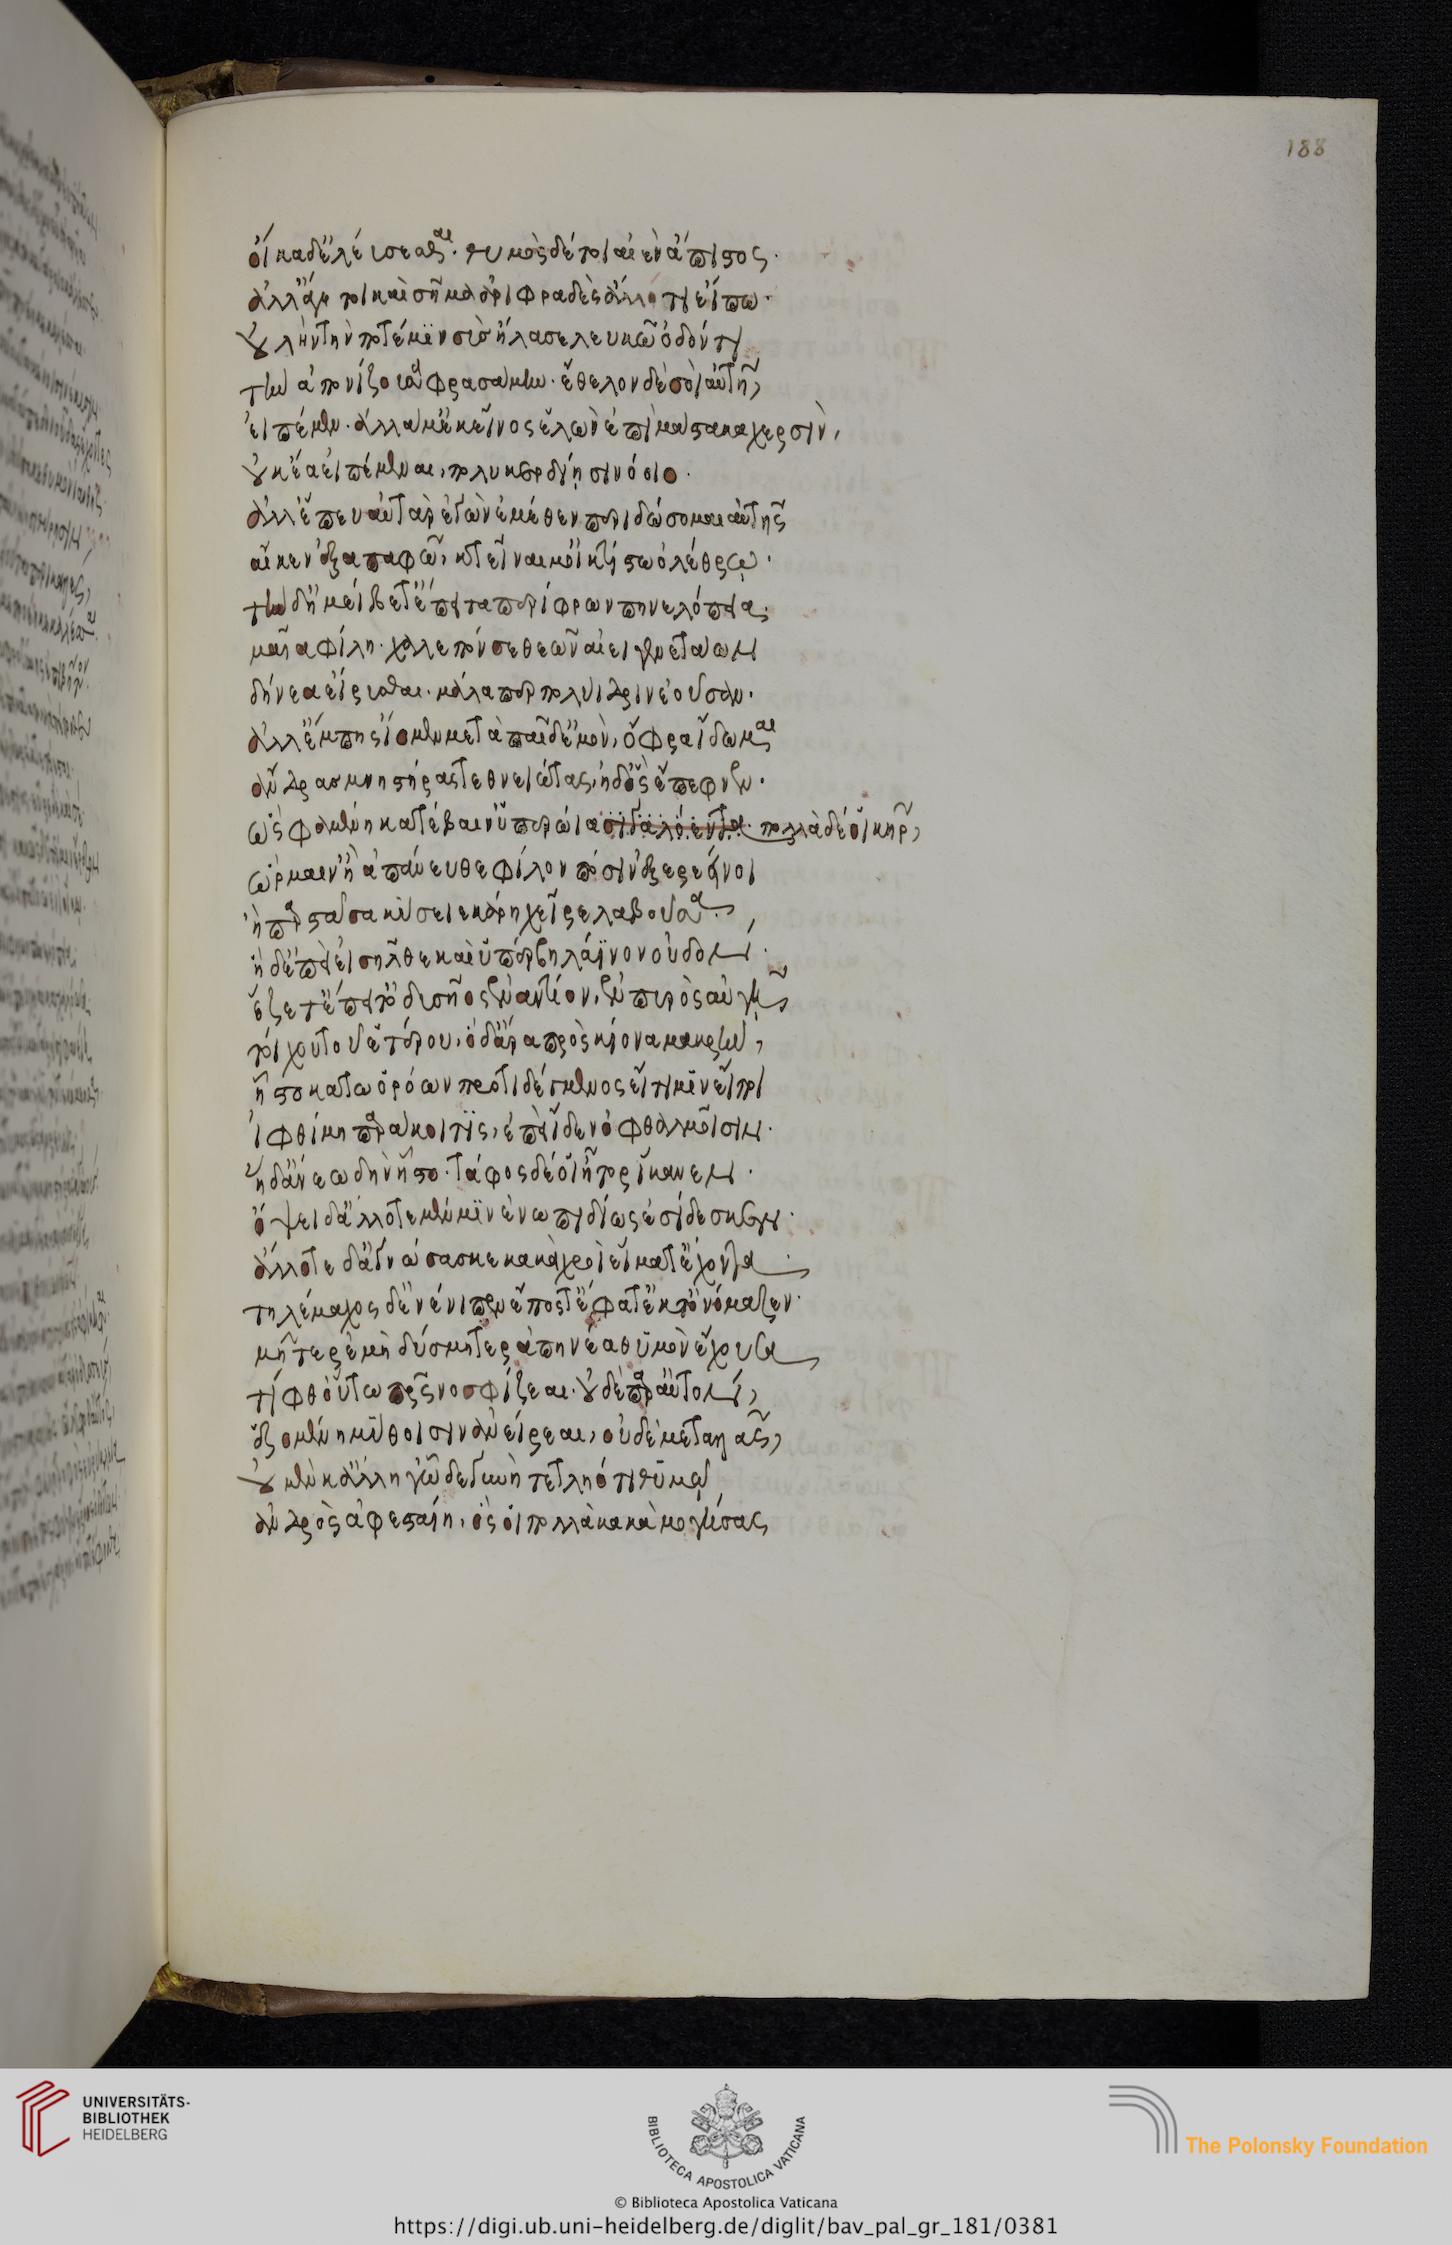 188
οἴκαδ' ἐλεύσεσθαι· θυμὸς δέ τοι αἰὲν ἄπιστος·
ἀλλ' ἄγε τοι καὶ σῆμα ἀριφραδὲς ἄλλό τι εἴπω·
οὐλὴν τὴν ποτέ μιν σῦς ἤλασε λευκῷ ὀδόντι
τὴν ἀπονίζουσα φρασάμην· ἔθελον δὲ σοὶ αὐτῇ,
εἰπέμεν· ἀλλά με κεῖνος ἑλὼν ἐπὶ μάστακα χερσὶν,
οὐκ ἔα εἰπέμεναι, πολυκερδίῃσι νόοιο·
ἀλλ' ἕπευ αὐτὰρ ἐγὼν ἐμέθεν περιδώσομαι αὐτῆς
αἴκεν σ' ἐξαπάφω, κτεῖναί μ' οἰκτίστῳ ὀλέθρῳ·
τὴν δ' ἠμείβετ' ἔπειτα περίφρων πηνελόπεια·
μαῖα φίλη· χαλεπόν σε θεῶν αἰειγενετάων
δήνεα εἴρυσθαι· μάλα περ πολύιδριν ἐοῦσαν·
ἀλλ' ἔμπης ἴομεν μετὰ παῖδ' ἐμὸν, ὄφρα ἴδωμαι
ἄνδρας μνηστῆρας τεθνειῶτας, ἠδ' ὃς ἔπεφνεν·
ὣς φαμένη κατέβαιν' ὑπερώια σιγαλόεντα πολλὰ δέ οἱ κῆρ,
ὥρμαιν' ἢ ἀπάνευθε φίλον πόσιν ἐξερεείνοι
ἢ παρστᾶσα κύσειε κάρη χεῖρε λαβοῦσα·
ἡ δ' ἐπεὶ εἰσῆλθε καὶ ὑπέρβη λάϊνον οὐδὸν·
ἕζετ' ἔπειτ' ὀδυσῆος ἐναντίον, ἐν πυρὸς αὐγῇ
τοίχου τοῦ ἑτέρου· ὁ δ' ἄρα πρὸς κίονα μακρὴν,
ἧστο κάτω ὁρόων ποτιδέγμενος εἴ τί μιν εἴποι
ἰφθίμη παράκοιτις, ἐπεὶ ἴδεν ὀφθαλμοῖσιν·
ἡ δ' ἄνεω δὴν ἧστο· τάφος δέ οἱ ἦτορ ἵκανεν·
ὄψει δ' ἄλλοτε μέν μιν ἐνωπιδίως ἐσίδεσκεν·
ἄλλοτε δ' ἀγνώσασκε κακὰ χροῒ εἵματ' ἔχοντα·
τηλέμαχος δ' ἐνένιπεν ἔπος τ' ἔφατ' ἔκ τ' ὀνόμαζεν·
μῆτερ ἐμὴ δύσμητερ ἀπηνέα θυμὸν ἔχουσα
τίφθ' οὕτω πατρὸς νοσφίζεαι· οὐδὲ παρ' αὐτὸν,
ἑζομένη μύθοισιν ἀνείρεαι, οὐδὲ μεταλλᾷς,
οὐ μέν κ' ἄλλη γ' ὧδε γυνὴ τετληότι θυμῷ
ἀνδρὸς ἀφεσταίη, ὅς οἱ πολλὰ κακὰ μογήσας
UNIVERSITÄTS-
BIBLIOTHEK
HEIDELBERG
BIBLIOTECA APOSTOLICA VATICANA
The Polonsky Foundation
© Biblioteca Apostolica Vaticana
https://digi.ub.uni-heidelberg.de/diglit/bav_pal_gr_181/0381